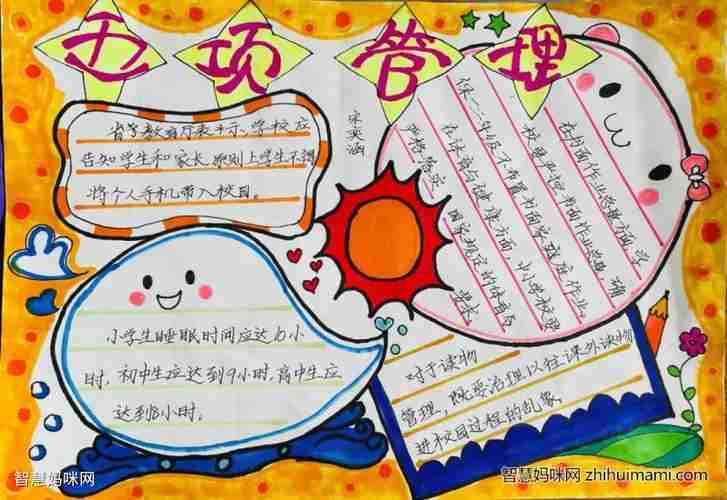 五项管理
宋奕涵
省学教育厅表示,学校应
告知学生和家长 原则上学生不得
将个人手机带入校园。
在书面作业总量方面,学
校要严控书面作业总量,确
保一、二年级不布置书面家庭作业。
在体育与健康方面,中小学校须
严格落实国家规定的体育与
小学生睡眠时间应达10小
时,初中生应达到9小时,高中生应
达到8小时。
对于读物
管理,既要治理以往课外读物
进校园过程的乱象
智慧妈咪网
智慧妈咪网 zhihuimami.com